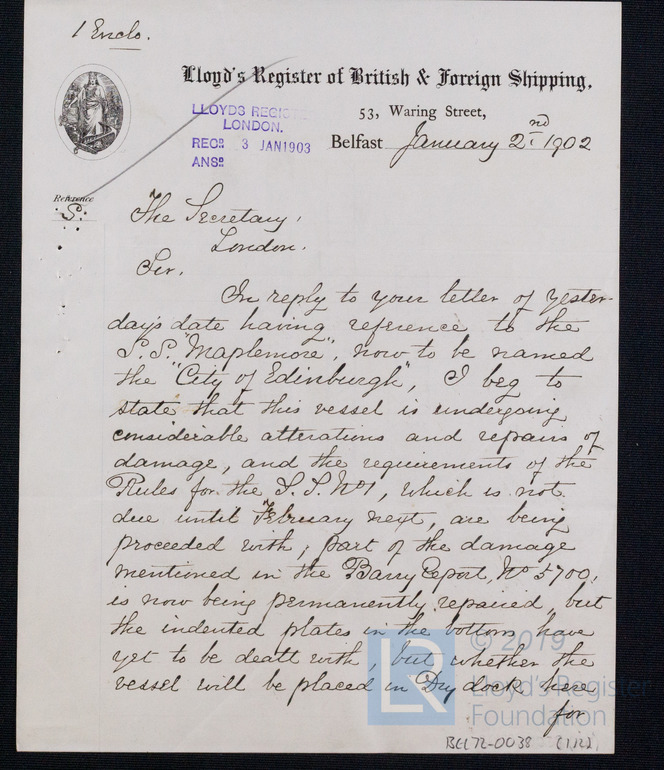 1 Enclo.
Lloyd's Register of British & Foreign Shipping,
53, Waring Street,
Belfast January 2nd 1902
LLOYDS REGIS
LONDON.
RECD. 3 JAN 1903
ANSD.
Reference
S.
The Secretary,
London.
Sir.
In reply to your letter of yester-
day's date having reference to the
S.S. "Maplemore", now to be named
the "City of Edinburgh", I beg to
state that this vessel is undergoing
considerable alterations and repairs of
damage, and the requirements of the
Rules for the S.S. No 1, which is not
due until February next, are being
proceeded with; part of the damage
mentioned in the Barry Report No 5700,
is now being permanently repaired, but
the indented plates in the bottom have
yet to be dealt with, but whether the
vessel will be placed in Dry dock here
for
© 2019
Lloyd's Register
Foundation
LR
BEL72-0038 (1/2)